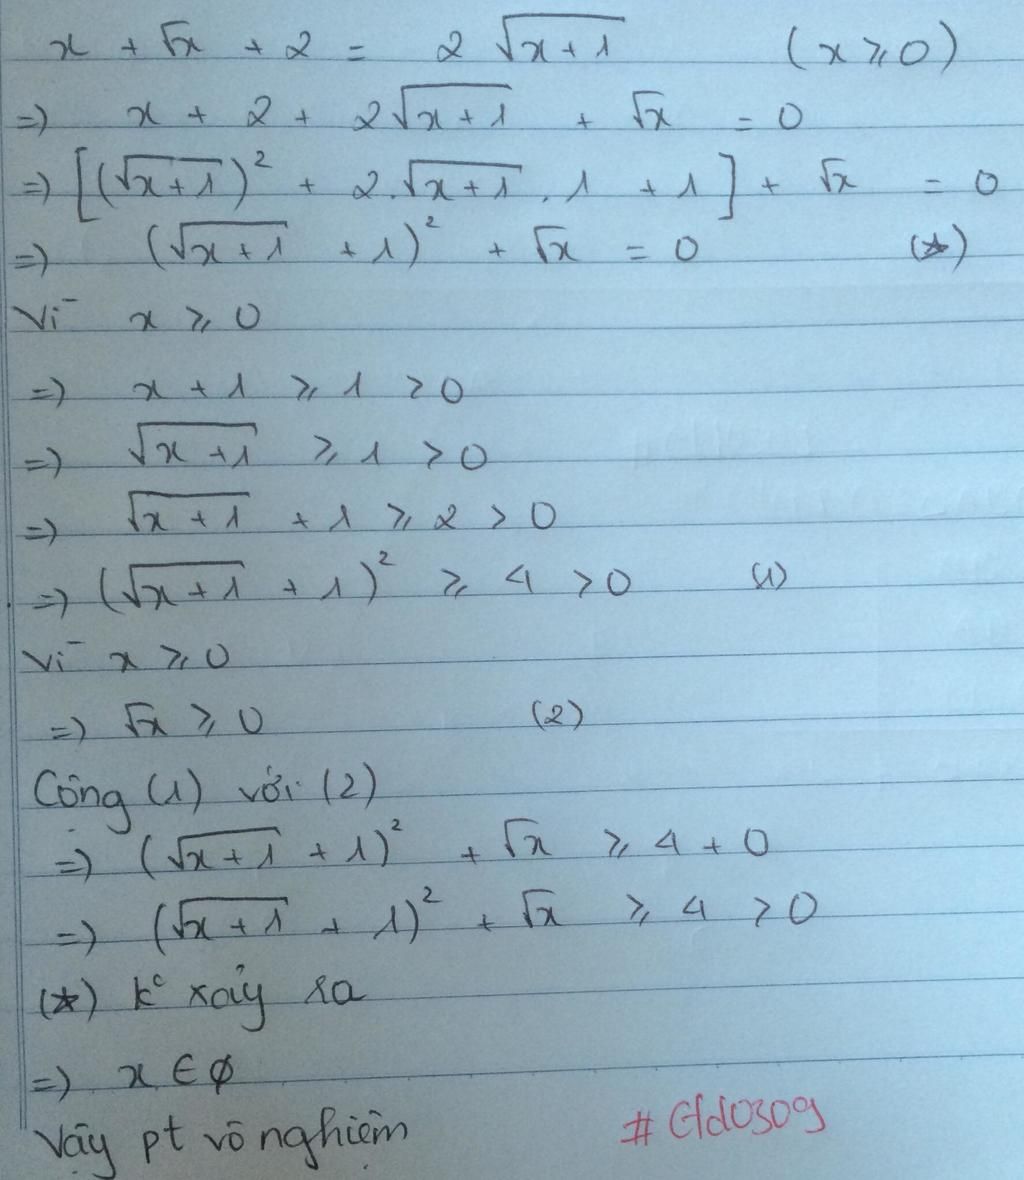 x + √x + 2 = 2 √(x+1) (x ⩾ 0)
=) x + 2 + 2√(x+1) + √x = 0
=) [(√(x+1))² + 2.√(x+1) . 1 + 1] + √x = 0
=) (√(x+1) + 1)² + √x = 0 (*)
Vì x ⩾ 0
=) x + 1 ⩾ 1 > 0
=) √(x+1) ⩾ 1 > 0
=) √(x+1) + 1 ⩾ 2 > 0
=) (√(x+1) + 1)² ⩾ 4 > 0 (1)
Vì x ⩾ 0
=) √x ⩾ 0 (2)
Cộng (1) với (2)
=) (√(x+1) + 1)² + √x ⩾ 4 + 0
=) (√(x+1) + 1)² + √x ⩾ 4 > 0
(*) k° xảy ra
=) x ∈ ∅
Vậy pt vô nghiệm